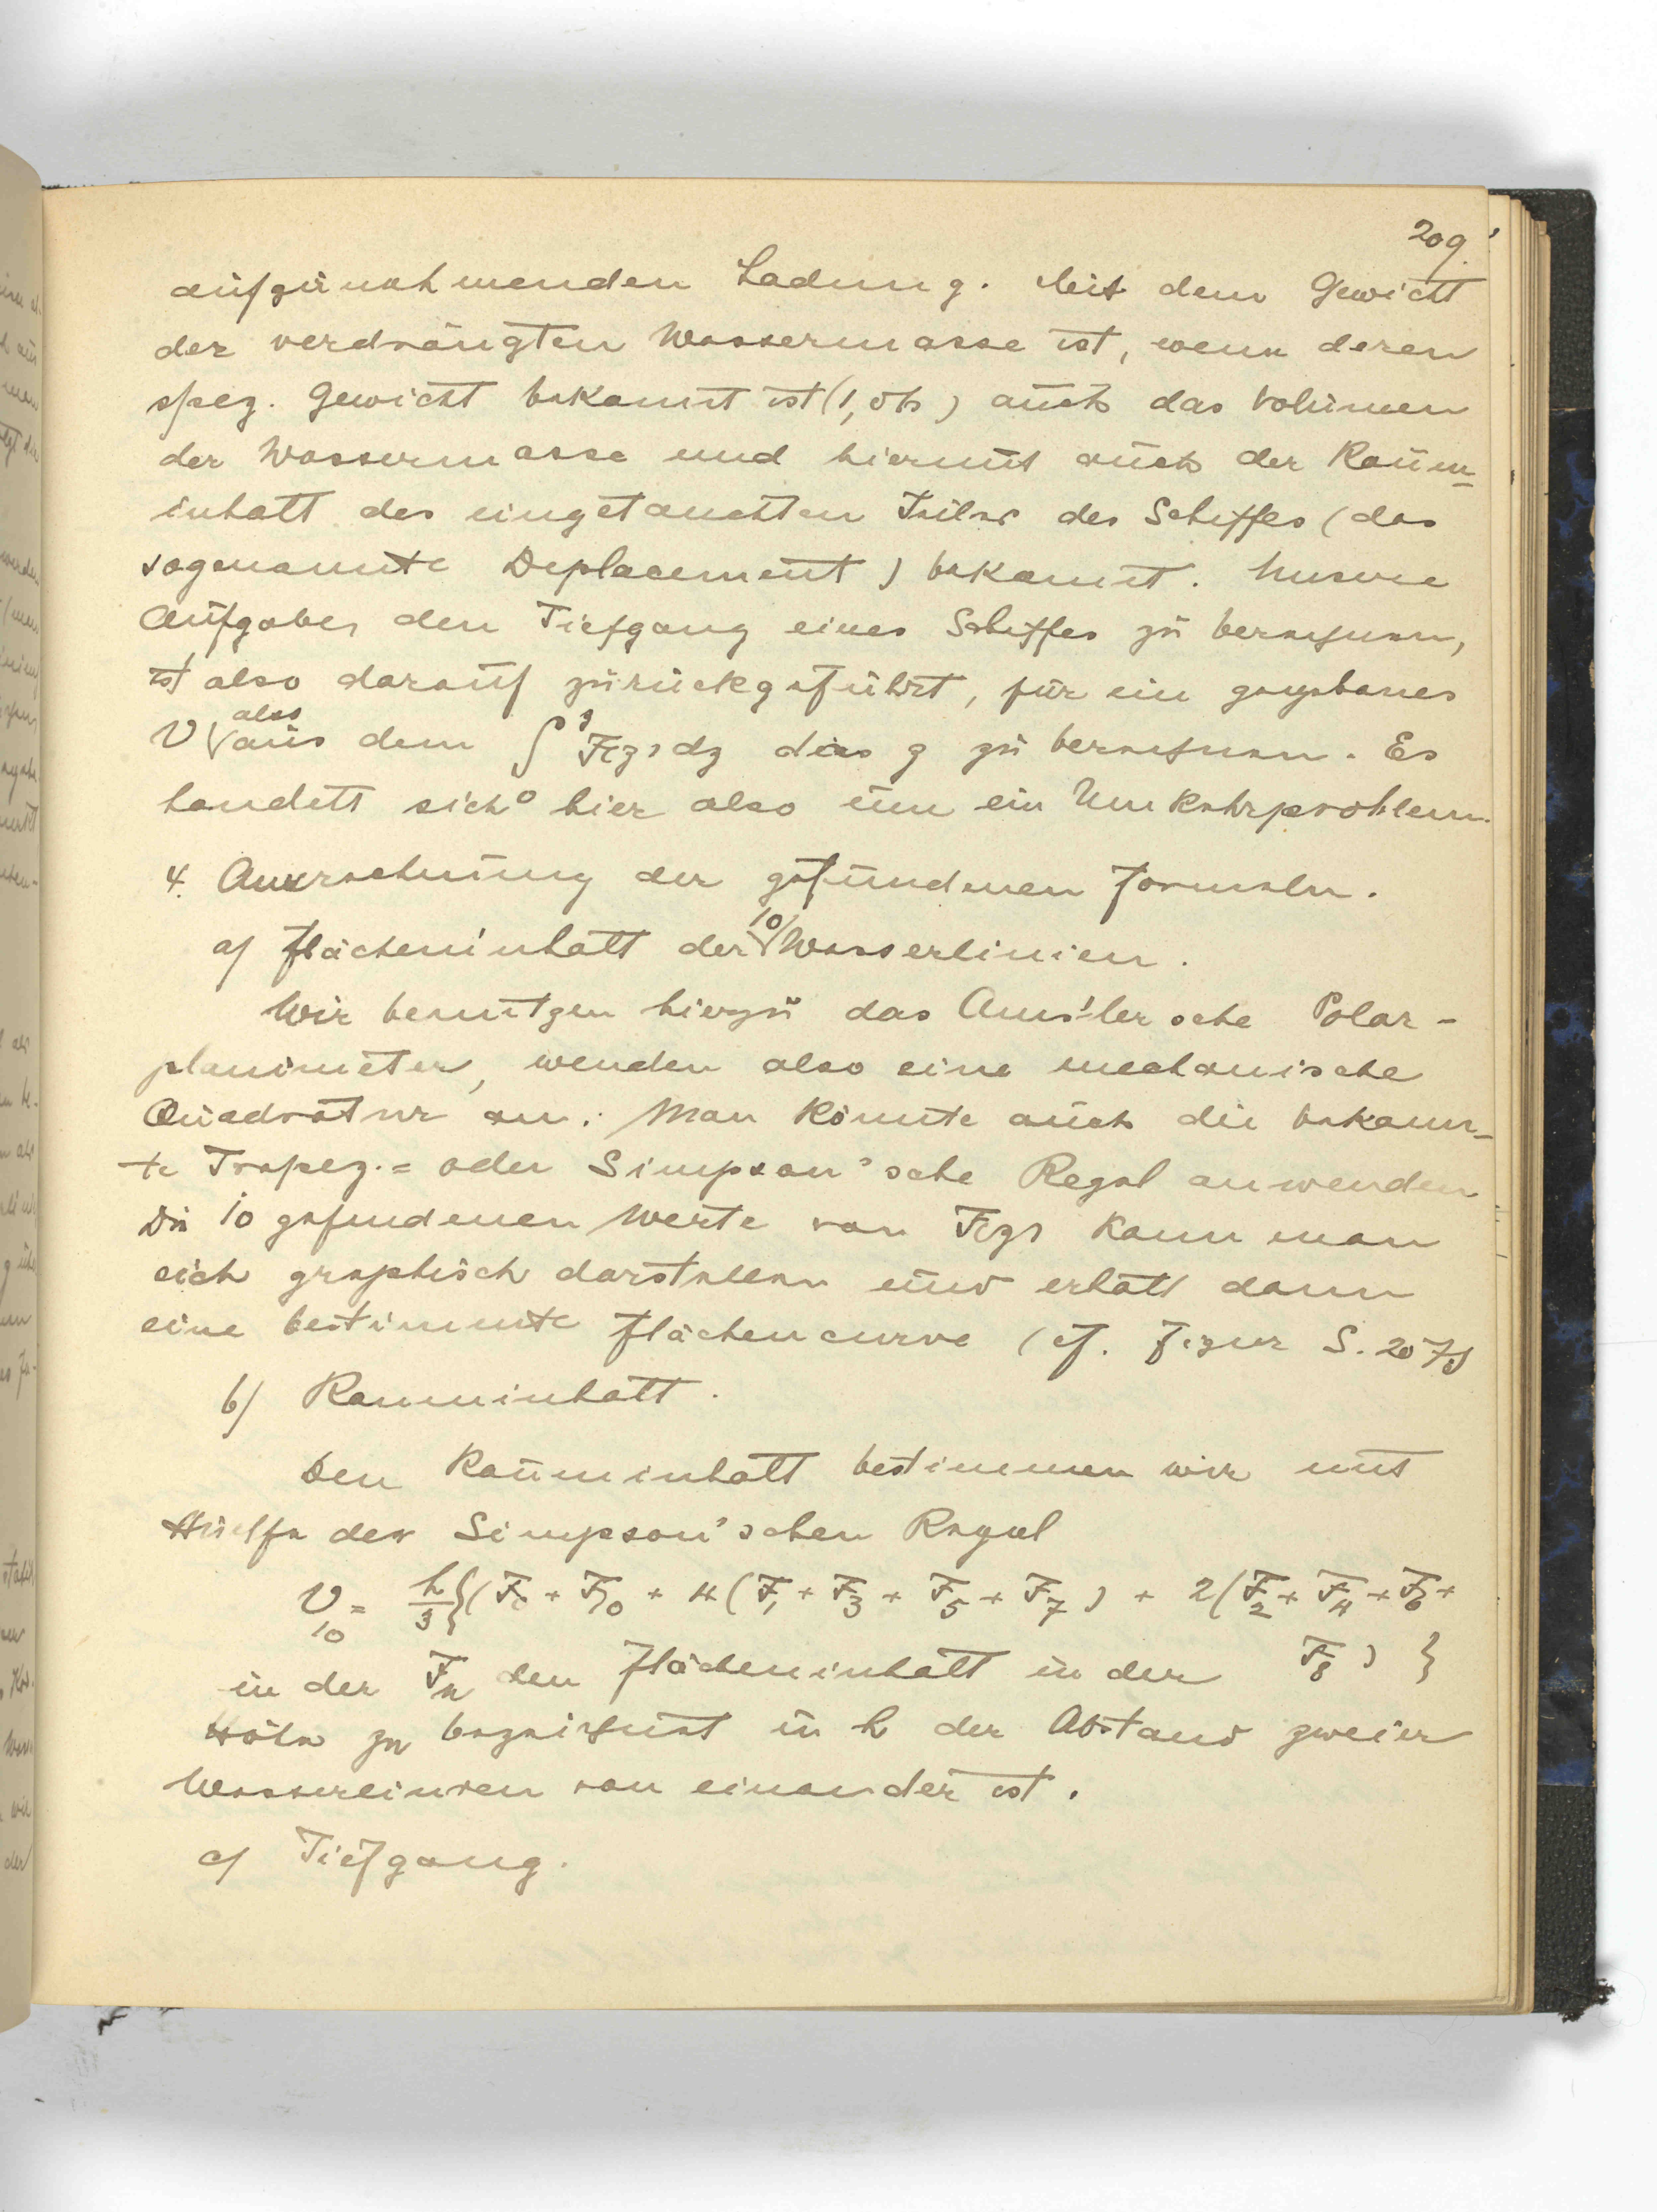 209.
aufzunehmenden Ladung. Mit dem Gewicht
der verdrängten Wassermasse ist, wenn deren
spez. Gewicht bekannt ist ( ) auch das Volumen
der Wassermasse und hiermit auch der Raum-
inhalt des eingetauchten Teiles des Schiffes (das
sogenannte Deplacement) bekannt. Unsere
Aufgabe, den Tiefgang eines Schiffes zu berechnen,
ist also darauf zurückgeführt, für ein gegebenes
V also aus dem ∫₀ᶻ F(z)dz das z zu berechnen. Es
handelt sich hier also um ein Umkehrproblem.
4. Ausrechnung der gefundenen Formeln.
a) Flächeninhalt der 10 Wasserlinien.
Wir benutzen hierzu das Amsler'sche Polar-
planimeter, wenden also eine mechanische
Quadratur an. Man könnte auch die bekann-
te Trapez.= oder Simpson'sche Regel anwenden
Die 10 gefundenen Werte von F(z) kann man
sich graphisch darstellen und erhält dann
eine bestimmte Flächencurve (cf. Figur S. 207)
b) Rauminhalt.
Den Rauminhalt bestimmen wir mit
Hülfe der Simpson'schen Regel
V₁₀ = h/3 {(F₀ + F₁₀ + 4(F₁ + F₃ + F₅ + F₇) + 2(F₂ + F₄ + F₆ +
F₈)}
in der Fₙ den Flächeninhalt in der
Höhe zₙ bezeichnet u h der Abstand zweier
Wasserlinien von einander ist.
c) Tiefgang.